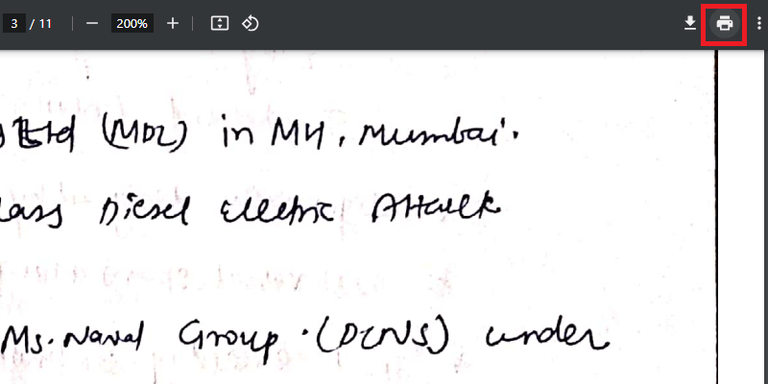 3 / 11 200%
Ltd (MDL) in MH, Mumbai.
lass Diesel Electric Attack
Ms. Naval Group. (DCNS) under